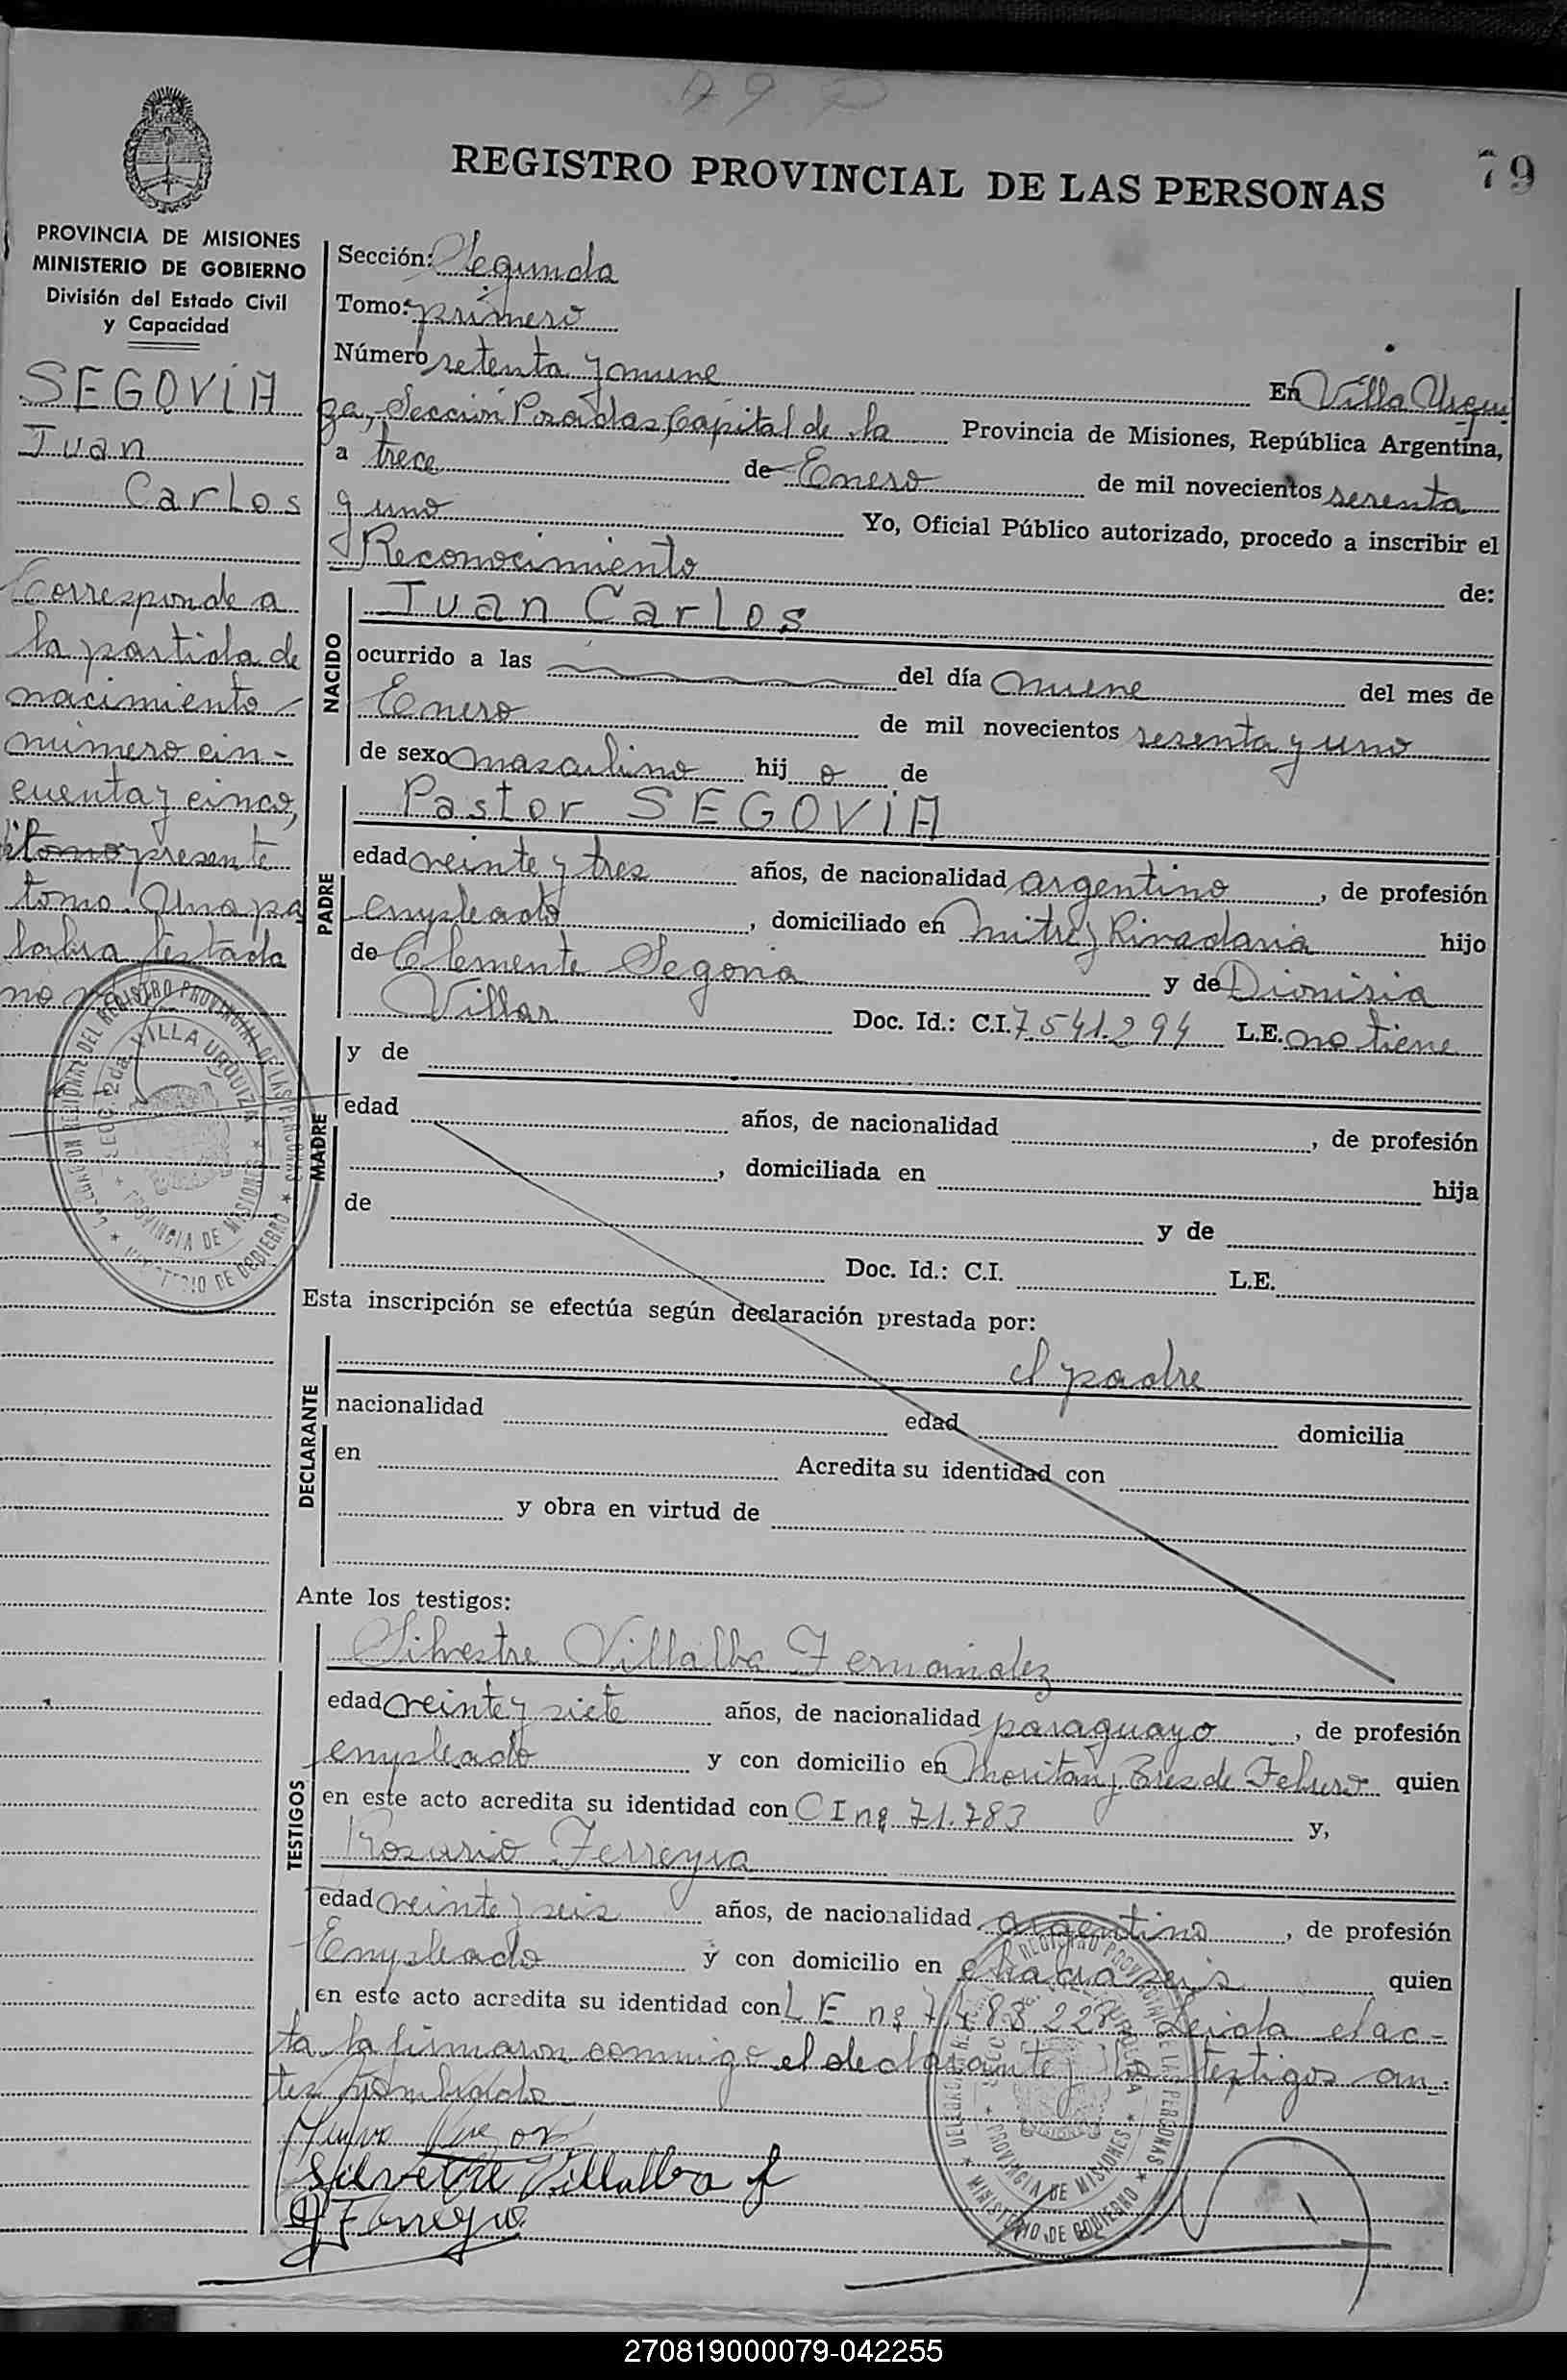 79
REGISTRO PROVINCIAL DE LAS PERSONAS
79
PROVINCIA DE MISIONES
MINISTERIO DE GOBIERNO
División del Estado Civil
y Capacidad
SEGOVIA
Juan
Carlos
Corresponde a
la partida de
nacimiento
número cin-
cuenta y cinco,
tomo presente
tomo. Una pa
labra testada
no
Sección: Segunda
Tomo: primero
Número setenta y nueve En Villa Urqui
za, Sección Posadas, Capital de la Provincia de Misiones, República Argentina,
a trece de Enero de mil novecientos sesenta
y uno Yo, Oficial Público autorizado, procedo a inscribir el
Reconocimiento de:
NACIDO
Juan Carlos
ocurrido a las del día nueve del mes de
Enero de mil novecientos sesenta y uno
de sexo masculino hijo de
PADRE
Pastor SEGOVIA
edad veinte y tres años, de nacionalidad argentino, de profesión
empleado, domiciliado en Mitre y Rivadavia hijo
de Clemente Segovia y de Dionisia
Villar Doc. Id.: C.I. 7.541.294 L.E. no tiene
MADRE
y de
edad años, de nacionalidad, de profesión
, domiciliada en hija
de y de
Doc. Id.: C.I. L.E.
Esta inscripción se efectúa según declaración prestada por:
DECLARANTE
el padre
nacionalidad edad domicilia
en Acredita su identidad con
y obra en virtud de
Ante los testigos:
TESTIGOS
Silvestre Villalba Fernandez
edad veinte y siete años, de nacionalidad paraguayo, de profesión
empleado y con domicilio en y Tres de Febrero quien
en este acto acredita su identidad con C I nº 71.783 y,
Rosario Ferreyra
edad veinte y seis años, de nacionalidad argentino, de profesión
Empleado y con domicilio en chacra seis quien
en este acto acredita su identidad con L E nº Leida el ac-
ta la firmaron conmigo el declarante y los testigos an
tes nombrado
Silvestre Villalba f
Ferreyra
DELEGACION REGIONAL DEL REGISTRO PROVINCIAL DE LAS PERSONAS
SECC. 2da. VILLA URQUIZA
PROVINCIA DE MISIONES
MINISTERIO DE GOBIERNO
PROVINCIA DE MISIONES
MINISTERIO DE GOBIERNO
270819000079-042255